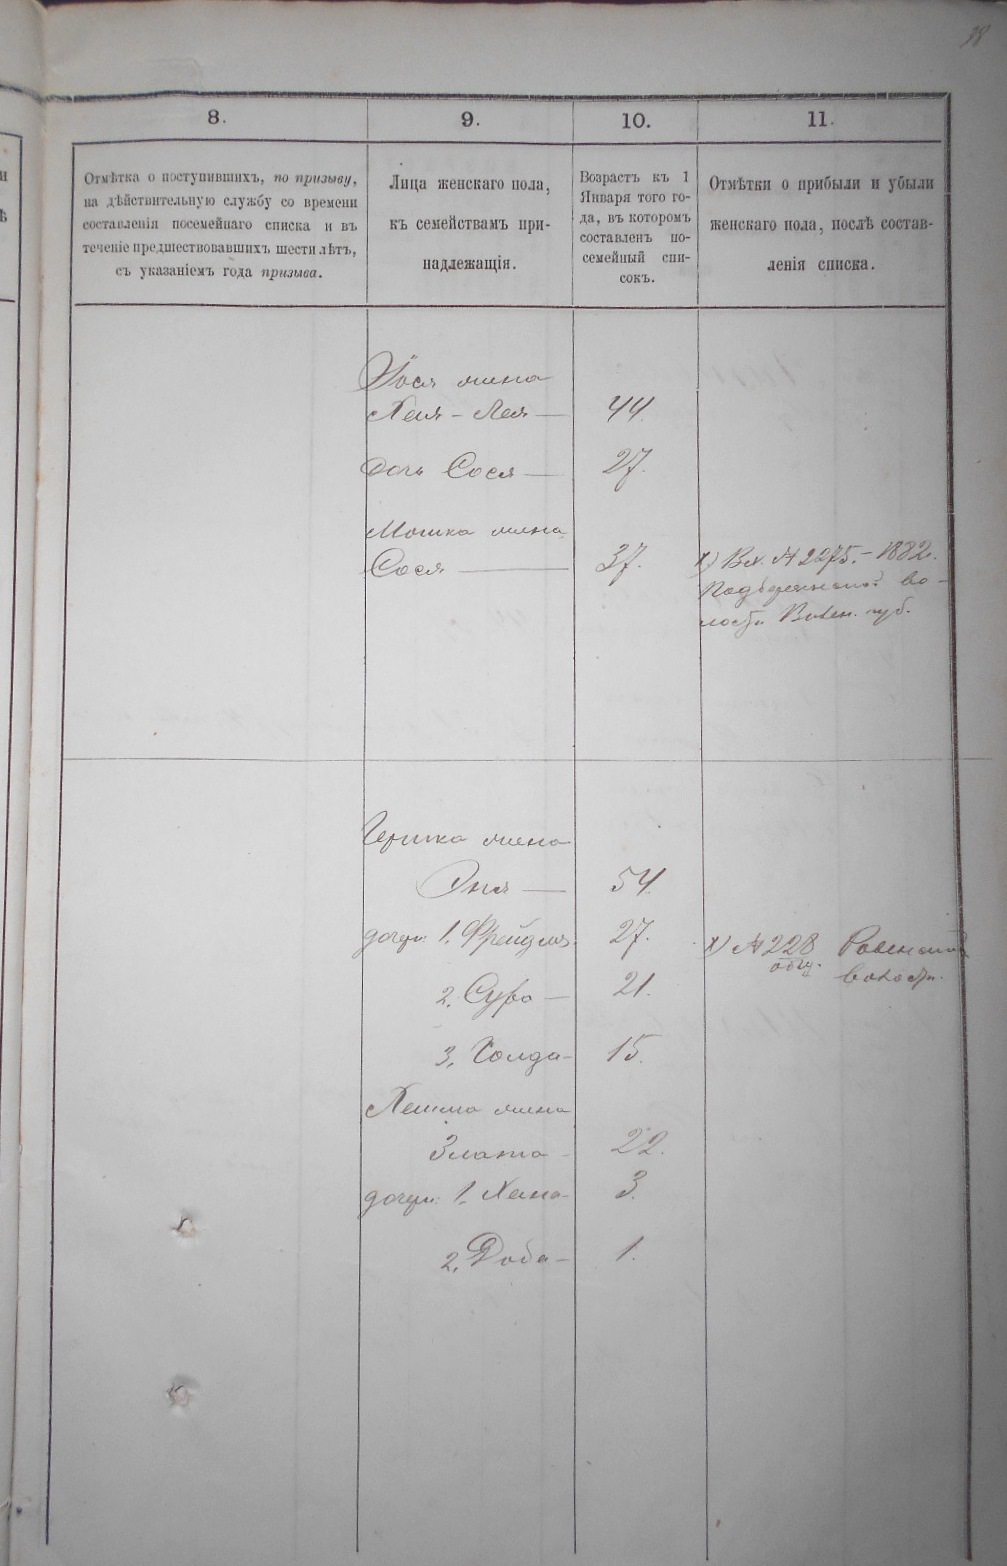 8.
9.
10.
11.
Отмѣтка о поступившихъ, по призыву,
на дѣйствительную службу со времени
составленія посемейнаго списка и въ
теченіе предшествовавшихъ шести лѣтъ,
съ указаніемъ года призыва.
Лица женскаго пола,
къ семействамъ при-
надлежащія.
Возрастъ къ 1
Января того го-
да, въ которомъ
составленъ по-
семейный спи-
сокъ.
Отмѣтки о прибыли и убыли
женскаго пола, послѣ состав-
ленія списка.
жена
Хая - Лея — 44.
дочь Сося — 27.
Мошка жена
Сося — 37.
х) Вх. № 2275. - 1882.
во-
лости Вилен. губ.
Гершка жена
Эня — 54.
дочери: 1. Фрейдля 27.
х) № 228
общ.
волости.
2. Сура — 21.
3. Голда - 15.
жена
Злата - 22.
дочери: 1. Хана - 3.
2. Доба - 1.